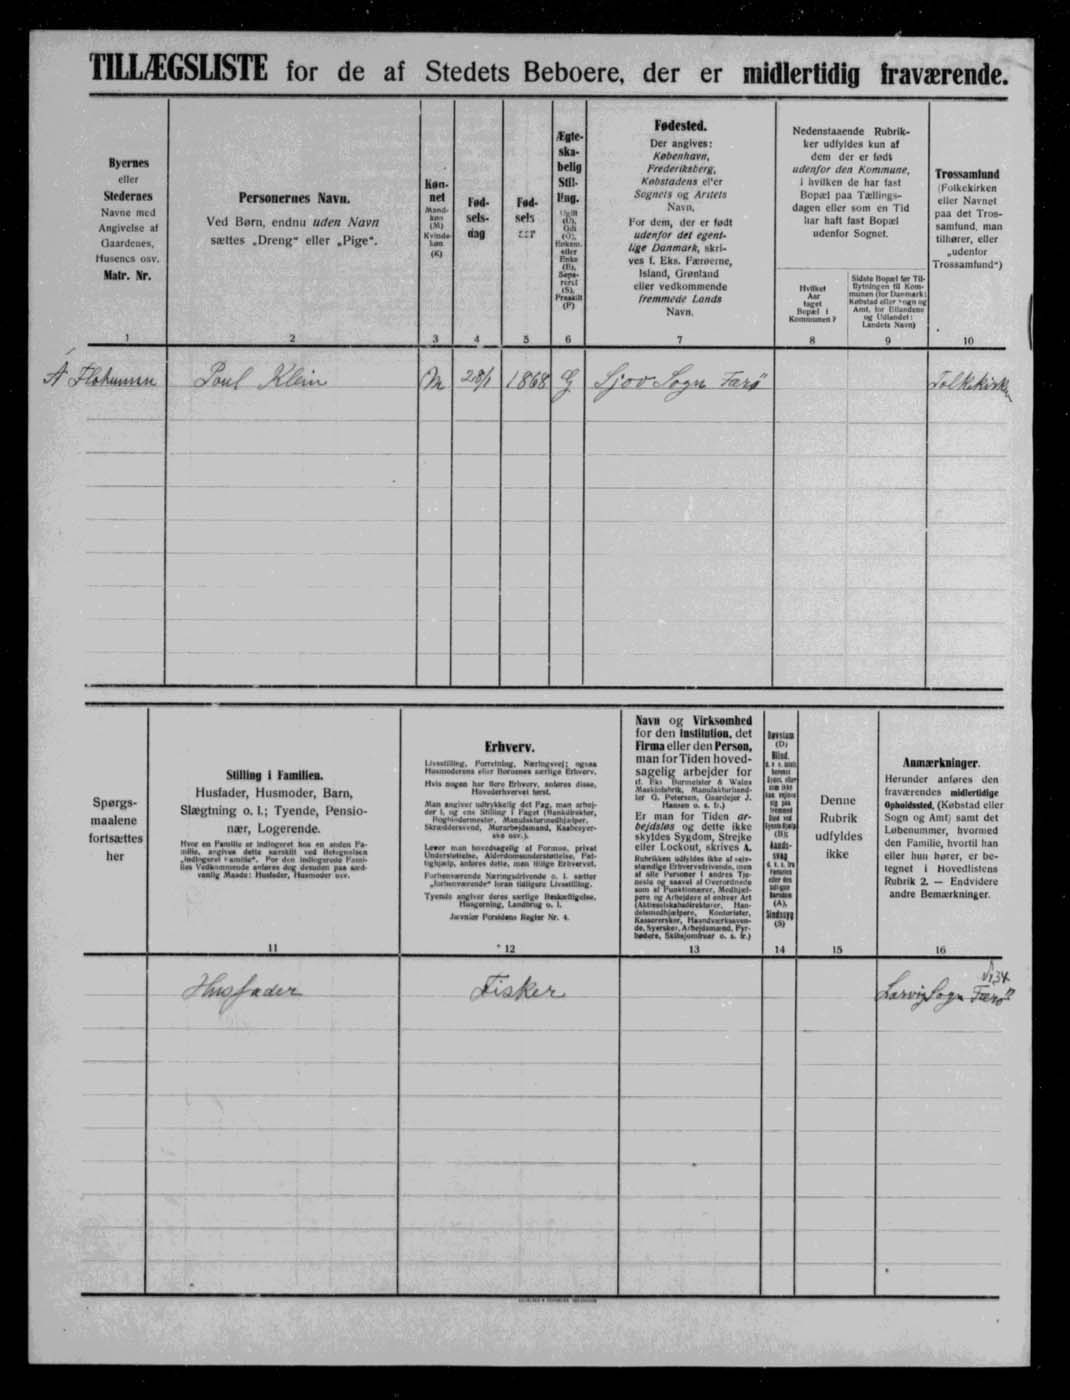 TILLÆGSLISTE for de af Stedets Beboere, der er midlertidig fraværende.
Byernes
eller
Stedernes
Navne med
Angivelse af
Gaardenes,
Husenes osv.
Matr. Nr.
1
Personernes Navn.
Ved Børn, endnu uden Navn
sættes „Dreng“ eller „Pige“.
2
Køn-
net
Mand-
køn
(M)
Kvinde-
køn
(K)
3
Fød-
sels-
dag
4
Fød-
sels
aar
5
Ægte-
ska-
belig
Stil-
ling.
Ugift
(U),
Gift
(G),
Enkem.
eller
Enke
(E),
Sepa-
reret
(S),
Fraskilt
(F)
6
Fødested.
Der angives:
København,
Frederiksberg,
Købstadens eller
Sognets og Amtets
Navn.
For dem, der er født
udenfor det egent-
lige Danmark, skri-
ves f. Eks. Færøerne,
Island, Grønland
eller vedkommende
fremmede Lands
Navn.
7
Nedenstaaende Rubrik-
ker udfyldes kun af
dem der er født
udenfor den Kommune,
i hvilken de har fast
Bopæl paa Tællings-
dagen eller som en Tid
har haft fast Bopæl
udenfor Sognet.
Hvilket
Aar
taget
Bopæl i
Kommunen?
8
Sidste Bopæl før Til-
flytningen til Kom-
munen (for Danmark:
Købstad eller Sogn og
Amt, for Bilandene
og Udlandet:
Landets Navn)
9
Trossamfund
(Folkekirken
eller Navnet
paa det Tros-
samfund, man
tilhører, eller
„udenfor
Trossamfund“)
10
Poul Klein
M
28/1
1868
G
Sjov Sogn Færø
Folkekirken
Spørgs-
maalene
fortsættes
her
Stilling i Familien.
Husfader, Husmoder, Barn,
Slægtning o. l.; Tyende, Pensio-
nær, Logerende.
Hvor en Familie er indlogeret hos en anden Fa-
milie, angives dette særskilt ved Betegnelsen
„indlogeret Familie“. For den indlogerede Fami-
lies Vedkommende anføres dog desuden paa sæd-
vanlig Maade: Husfader, Husmoder osv.
11
Erhverv.
Livsstilling, Forretning, Næringsvej; ogsaa
Husmoderens eller Børnenes særlige Erhverv.
Hvis nogen har flere Erhverv, anføres disse,
Hovederhvervet først.
Man angiver udtrykkelig det Fag, man arbej-
der i, og ens Stilling i Faget (Bankdirektør,
Bogbindermester, Manufakturmedhjælper,
Skræddersvend, Murarbejdsmand, Kaabesyer-
ske osv.).
Lever man hovedsagelig af Formue, privat
Understøttelse, Alderdomsunderstøttelse, Fat-
tighjælp, anføres dette, man tillige Erhvervet.
Forhenværende Næringsdrivende o. l. sætter
„forhenværende“ foran tidligere Livsstilling.
Tyende angiver deres særlige Beskæftigelse,
Husgerning, Landbrug o. l.
Jævnfør Forsidens Regler Nr. 4.
12
Navn og Virksomhed
for den Institution, det
Firma eller den Person,
man for Tiden hoved-
sagelig arbejder for
(f. Eks Burmeister & Wains
Maskinfabrik, Manufakturhand-
ler G. Petersen, Gaardejer J.
Hansen o. s. fr.)
Er man for Tiden ar-
bejdsløs og dette ikke
skyldes Sygdom, Strejke
eller Lockout, skrives A.
Rubrikken udfyldes ikke af selv-
stændige Erhvervsdrivende, men
af alle Personer i andres Tje-
neste og saavel af Overordnede
som af Funktionærer, Medhjæl-
pere og Arbejdere af enhver Art
(Aktieselskabsdirektører, Han-
delsmedhjælpere, Kontorister,
Kassererske​r, Haandværkssven-
de, Syersker, Arbejdsmænd, Fyr-
bødere, Skibsjomfruer o. s. fr.)
13
Døvstum
(D)
Blind,
(B);
Aands-
svag
(A),
Sindssyg
(S)
14
Denne
Rubrik
udfyldes
ikke
15
Anmærkninger.
Herunder anføres den
fraværendes midlertidige
Opholdssted, (Købstad eller
Sogn og Amt) samt det
Løbenummer, hvormed
den Familie, hvortil han
eller hun hører, er be-
tegnet i Hovedlistens
Rubrik 2. — Endvidere
andre Bemærkninger.
16
Husfader
Fisker
Nr 34
Lorvig Sogn Færø